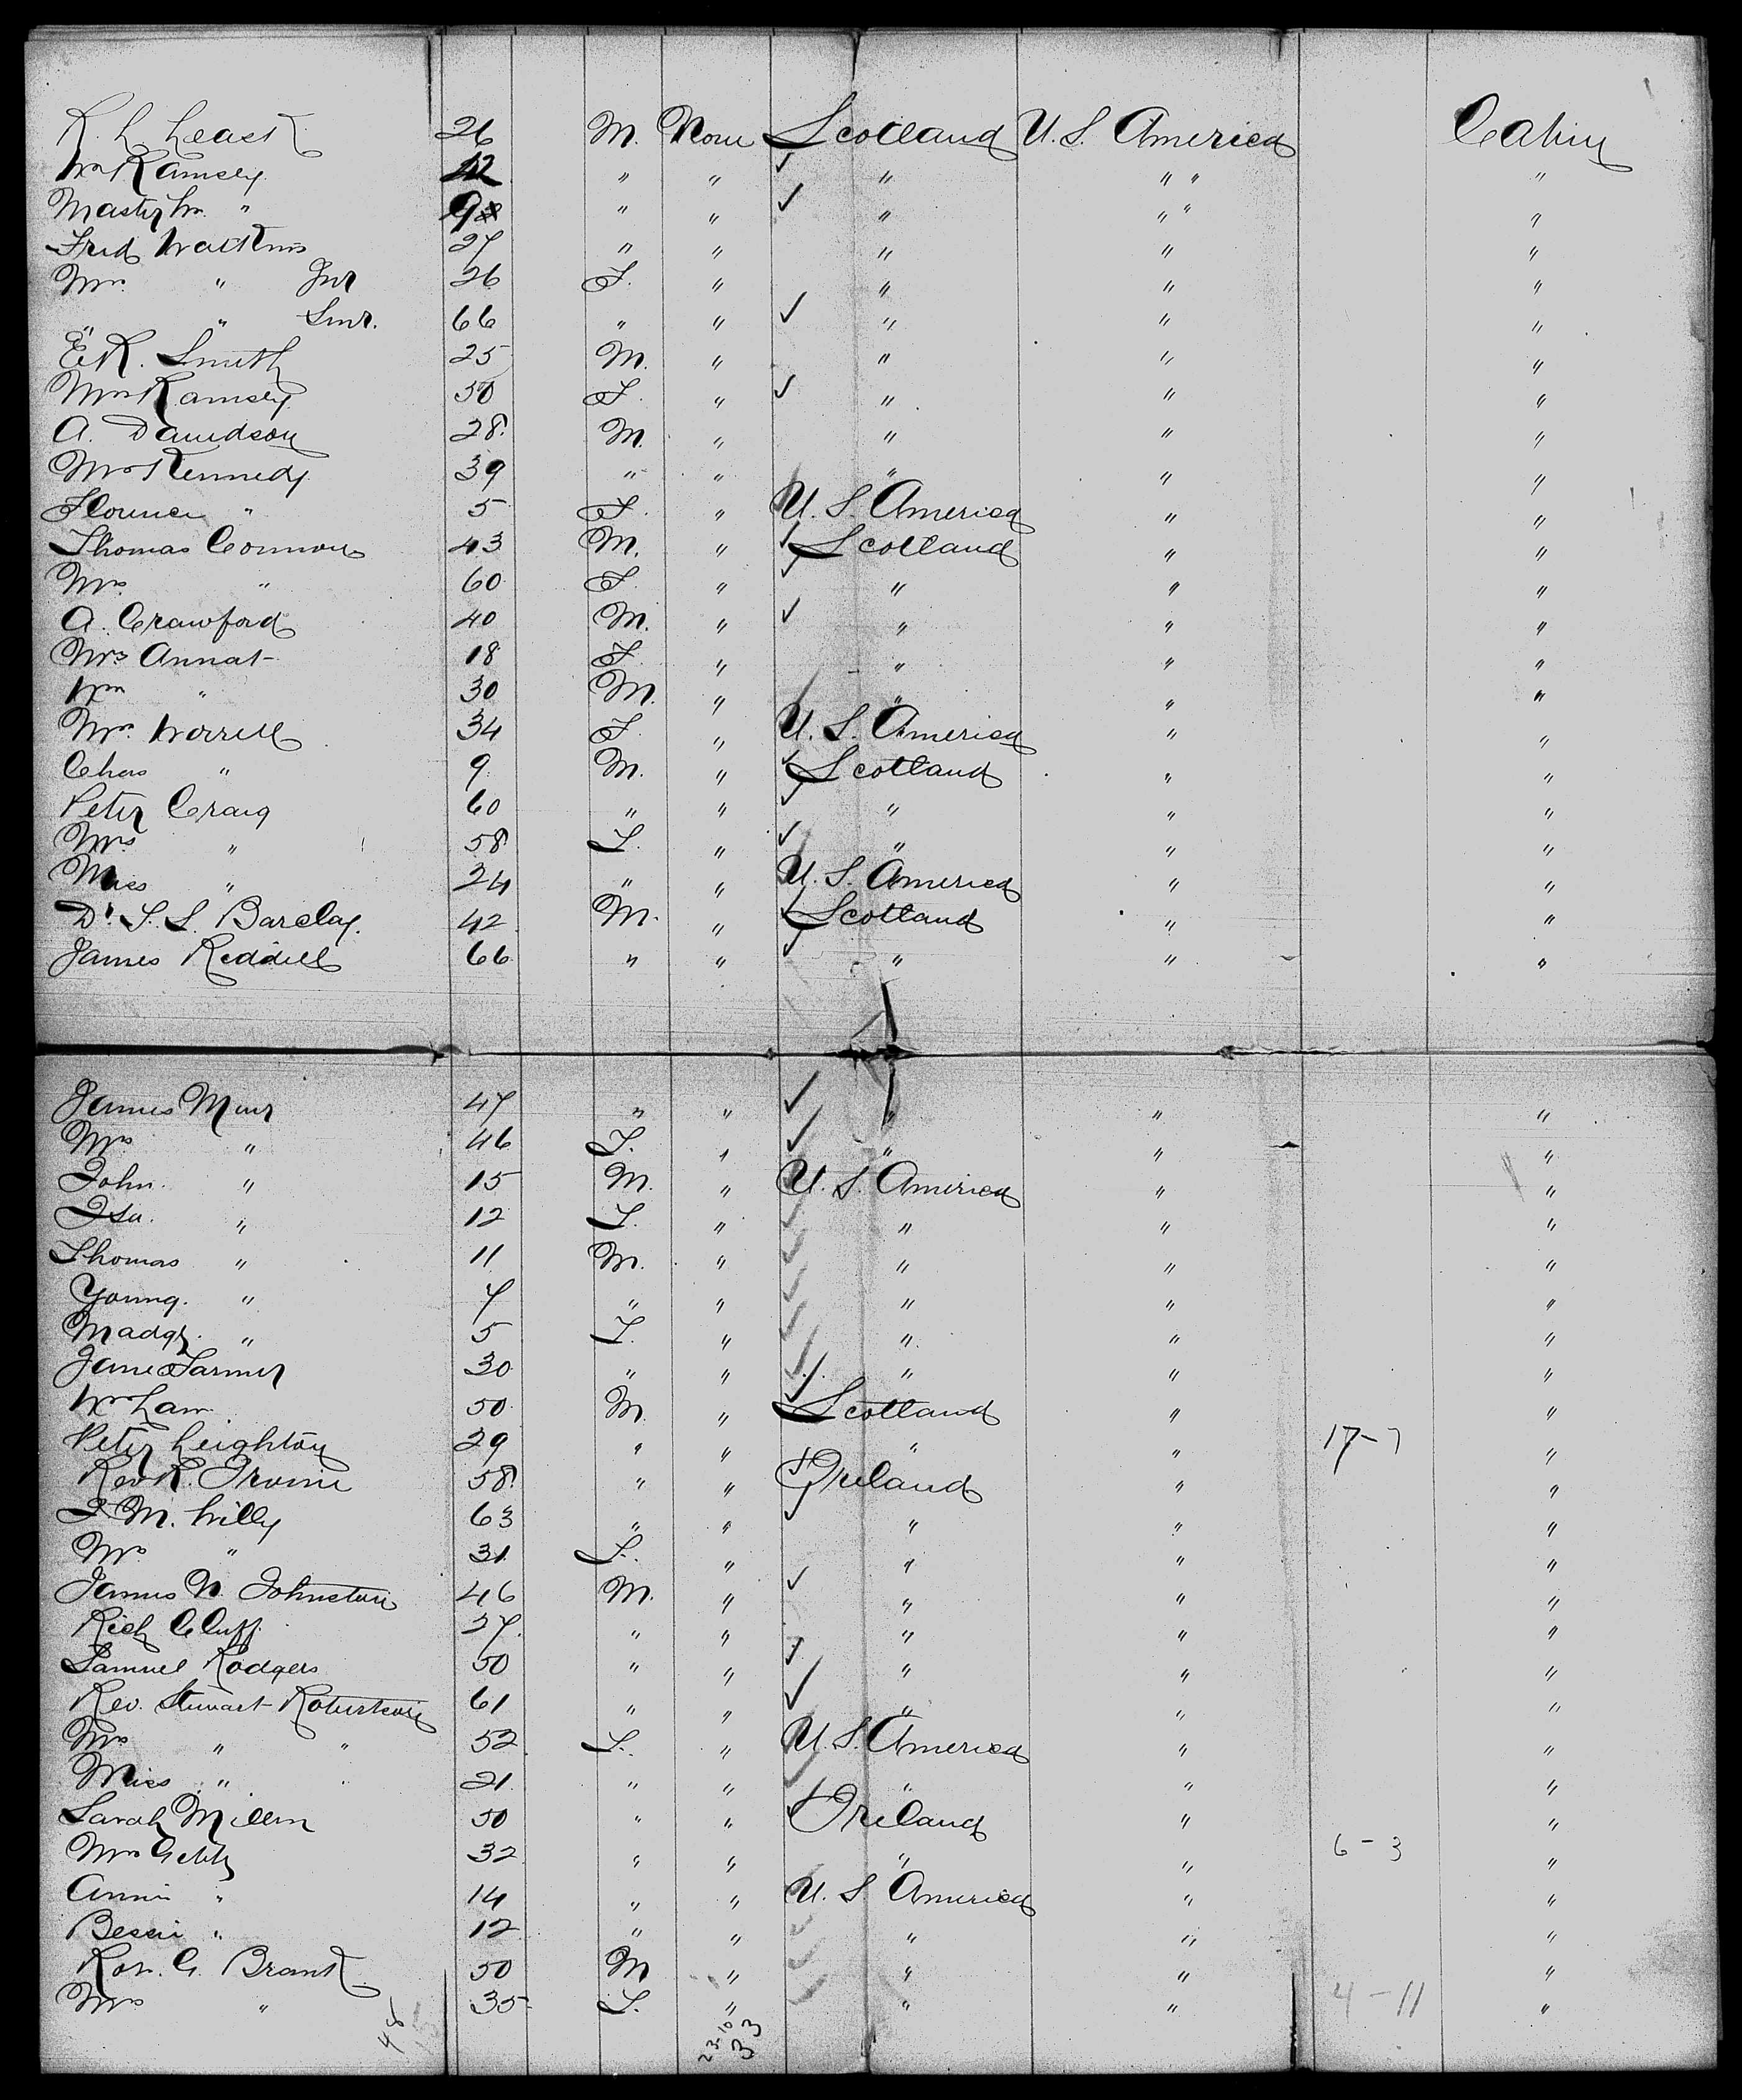 R. L. Leask 26 M. None Scotland U. S. America Cabin
Wm Ramsey 42 " " " " " "
Master Wm. " 9 " " " " " "
Fred Watkins 27 " " " " "
Mrs. " Jnr 26 F. " " " "
" " Snr. 66 " " " " "
E. R. Smith 25 M. " " " "
Mrs Ramsey 50 F. " " " "
A. Davidson 28 M. " " " "
Mr Kennedy 39 " " " " "
Florence " 5 F. " U. S. America " "
Thomas Connor 43 M. " Scotland " "
Mrs. " 60 F. " " " "
A. Crawford 40 M. " " " "
Mrs Annat 18 F. " " " "
Wm " 30 M. " " " "
Mrs. Worrell 34 F. " U. S. America " "
Chas " 9 M. " Scotland " "
Peter Craig 60 " " " " "
Mrs " 58 F. " " " "
Miss " 24 " " U. S. America " "
Dr S. S. Barclay. 42 M. " Scotland " "
James Reddill 66 " " " " "
James Muir 47 " " " " "
Mrs " 46 F. " " " "
John. " 15 M. " U. S. America " "
Isa. " 12 F. " " " "
Thomas " 11 M. " " " "
Young. " 7 " " " " "
Madge. " 5 F. " " " "
Jane Farmer 30 " " " " "
Wm Lam 50 M. " Scotland " "
Peter Leighton 29 " " " " 17-7 "
Rev R. Irvine 58 " " Ireland " "
I M. Willy 63 " " " " "
Mrs " 31 F. " " " "
James N. Johnston 46 M. " " " "
Rich Cluff. 37 " " " " "
Samuel Rodgers 50 " " " " "
Rev. Stewart Robertson 61 " " " " "
Mrs " " 52 F. " U. S. America " "
Miss " " 21 " " " " "
Sarah Millen 50 " " Ireland " "
Mrs Gebby 32 " " " " 6-3 "
Annie " 14 " " U. S. America " "
Bessie " 12 " " " " "
Rev. G. Brank 50 M " " " "
Mrs " 35 F. " " " 4-11 "
48
23-10
33